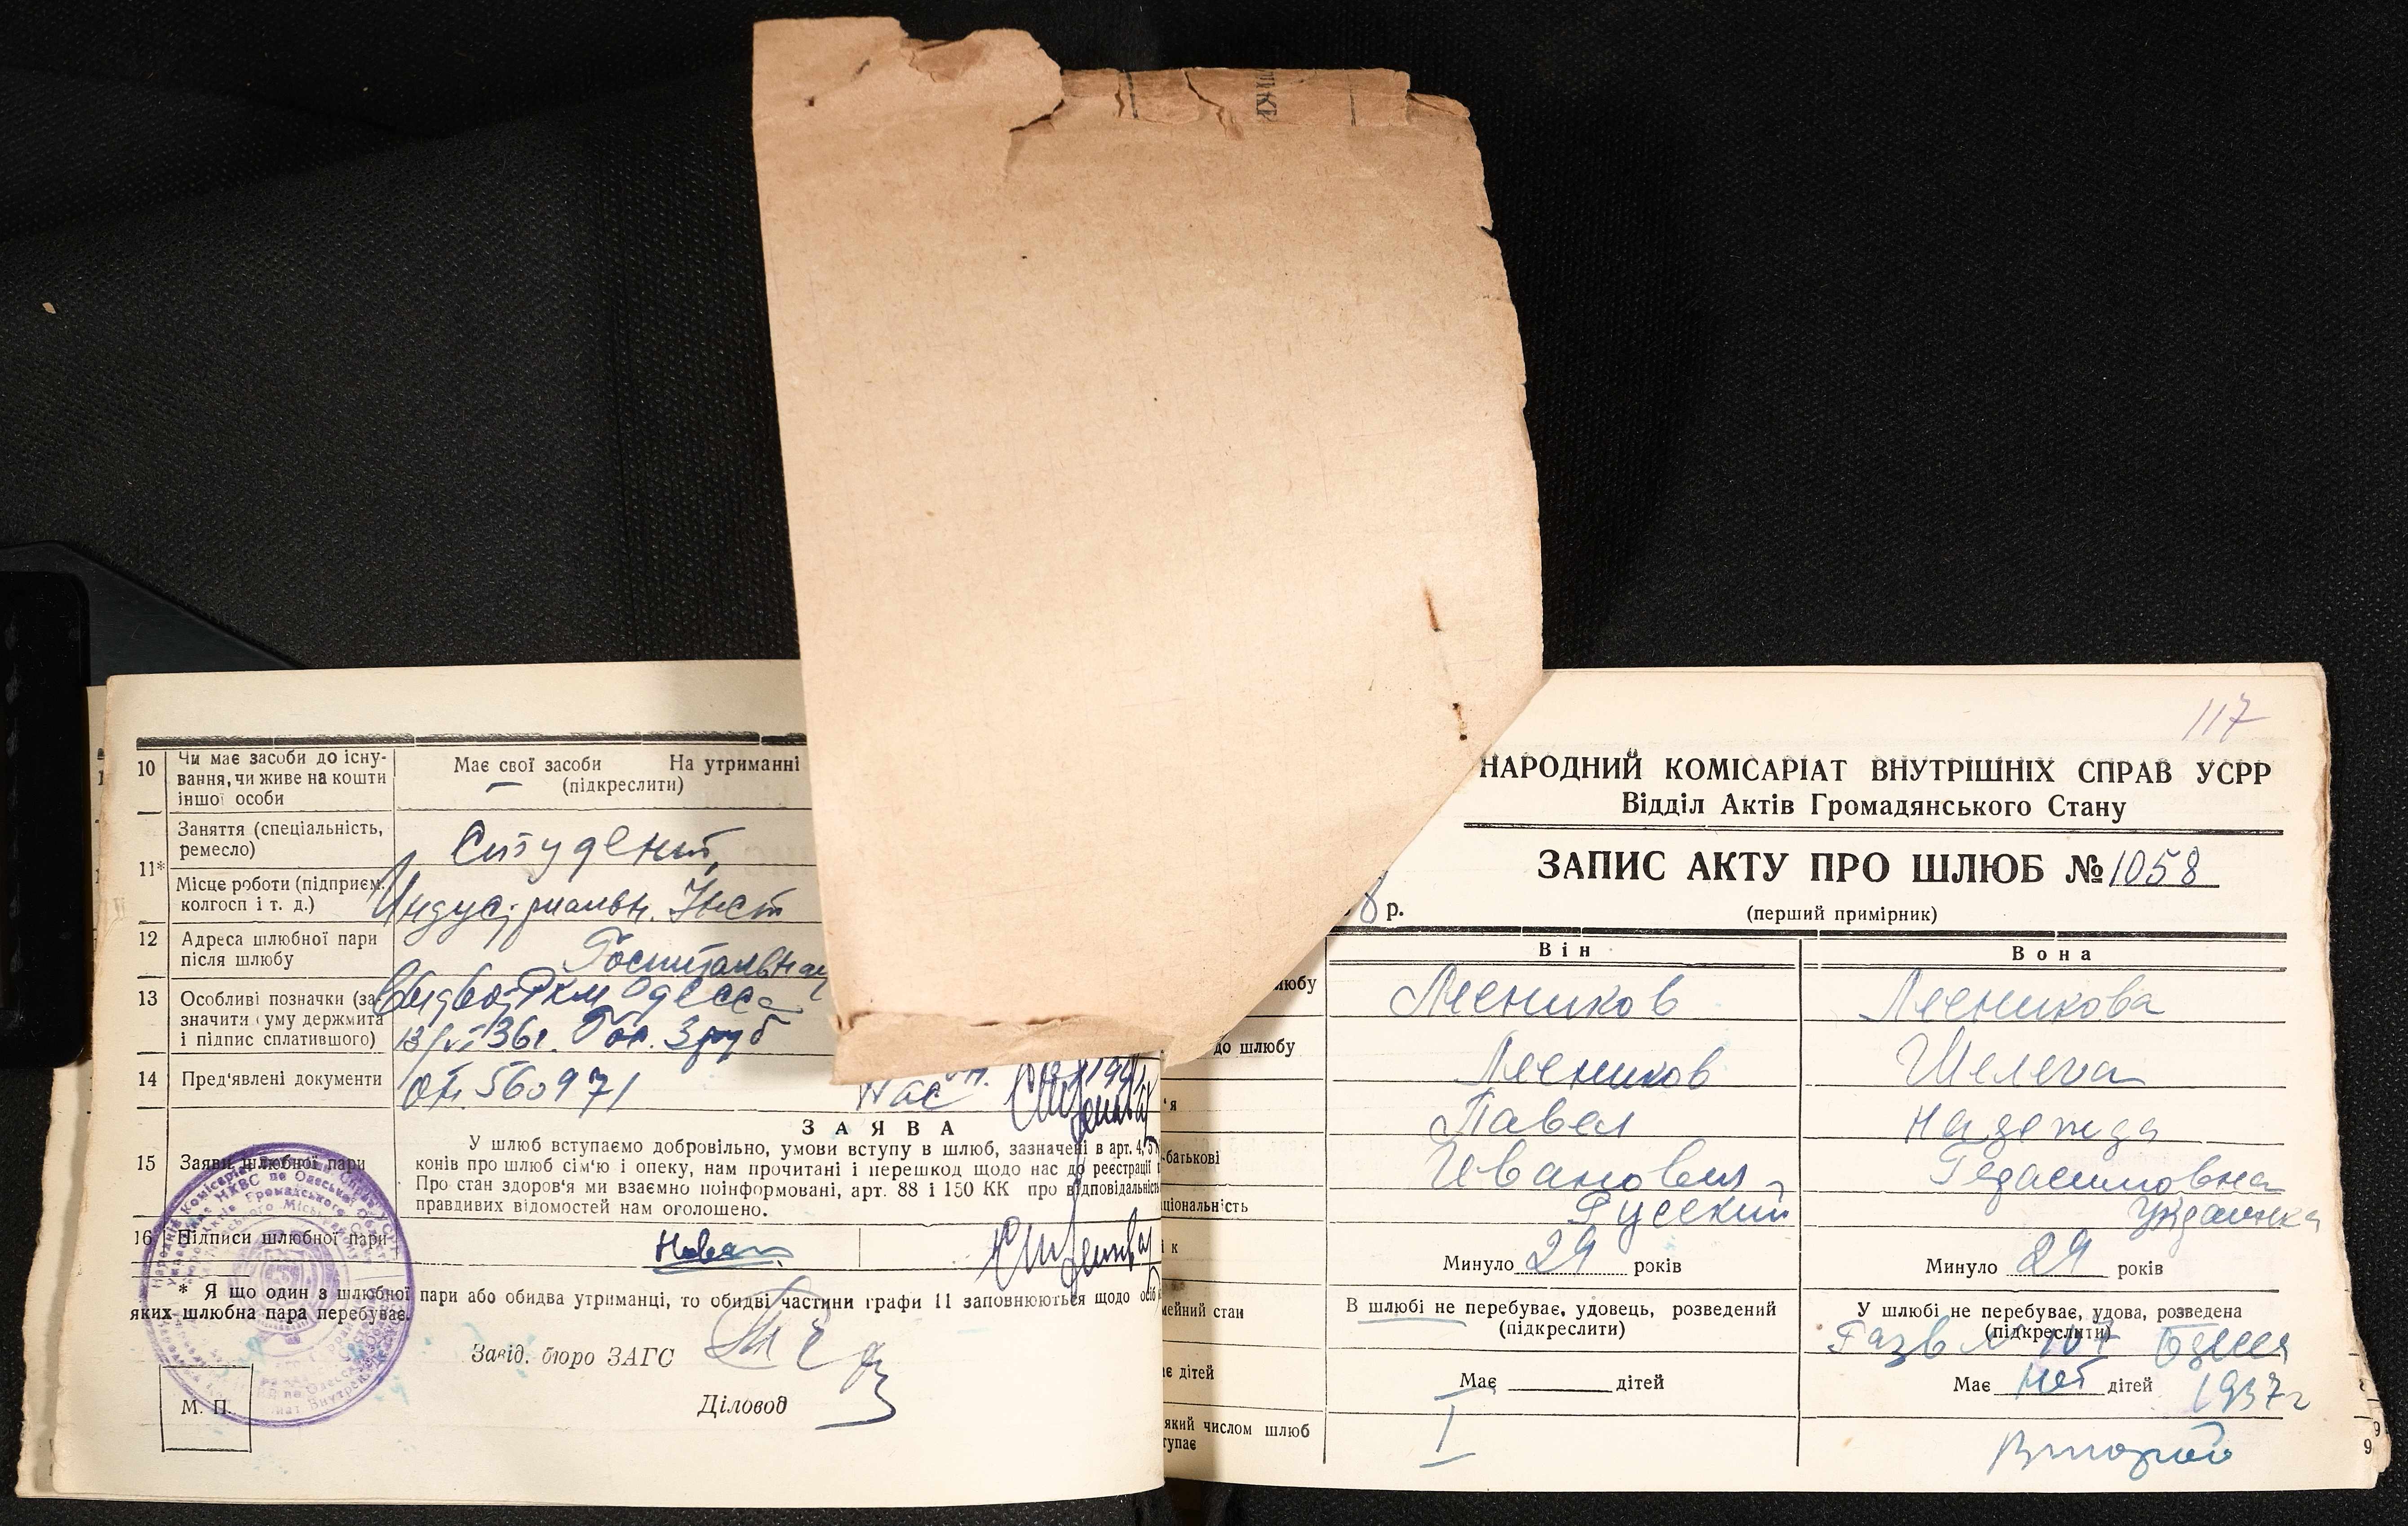 10 Чи має засоби до існу-
вання, чи живе на кошти
іншої особи
Має свої засоби На утриманні
(підкреслити)
11* Заняття (спеціальність,
ремесло)
Студент
Місце роботи (підприєм.
колгосп і т. д.)
Индустриальн. Инст
12 Адреса шлюбної пари
після шлюбу
Госпитальная
13 Особливі позначки (за-
значити суму держмита
і підпис сплатившого)
Одесса
36г. 3 руб
14 Пред'явлені документи
от. 560971
ЗАЯВА
15 Заяви шлюбної пари
У шлюб вступаємо добровільно, умови вступу в шлюб, зазначені в арт. 4, 5
конів про шлюб сім'ю і опеку, нам прочитані і перешкод щодо нас до реєстрації
Про стан здоров'я ми взаємно поінформовані, арт. 88 і 150 КК про відповідальність
правдивих відомостей нам оголошено.
16 Підписи шлюбної пари
* Я що один з шлюбної пари або обидва утриманці, то обидві частини графи 11 заповнюються щодо осіб
яких шлюбна пара перебуває.
Завід. бюро ЗАГС
Діловод
М. П.
117
НАРОДНИЙ КОМІСАРІАТ ВНУТРІШНІХ СПРАВ УСРР
Відділ Актів Громадянського Стану
ЗАПИС АКТУ ПРО ШЛЮБ № 1058
8 р.
(перший примірник)
Він Вона
любу
Лесников Лесникова
до шлюбу
Лесников Шелега
'я
Павел Надежда
-батькові
Иванович Герасимовна
ціональність
Русский Украинка
і к
Минуло 29 років Минуло 29 років
мейний стан
В шлюбі не перебуває, удовець, розведений
(підкреслити)
У шлюбі не перебуває, удова, розведена
(підкреслити)
Разв № 107 Одесса
1937г
є дітей
Має дітей Має нет дітей
який числом шлюб
тупає
I Второй